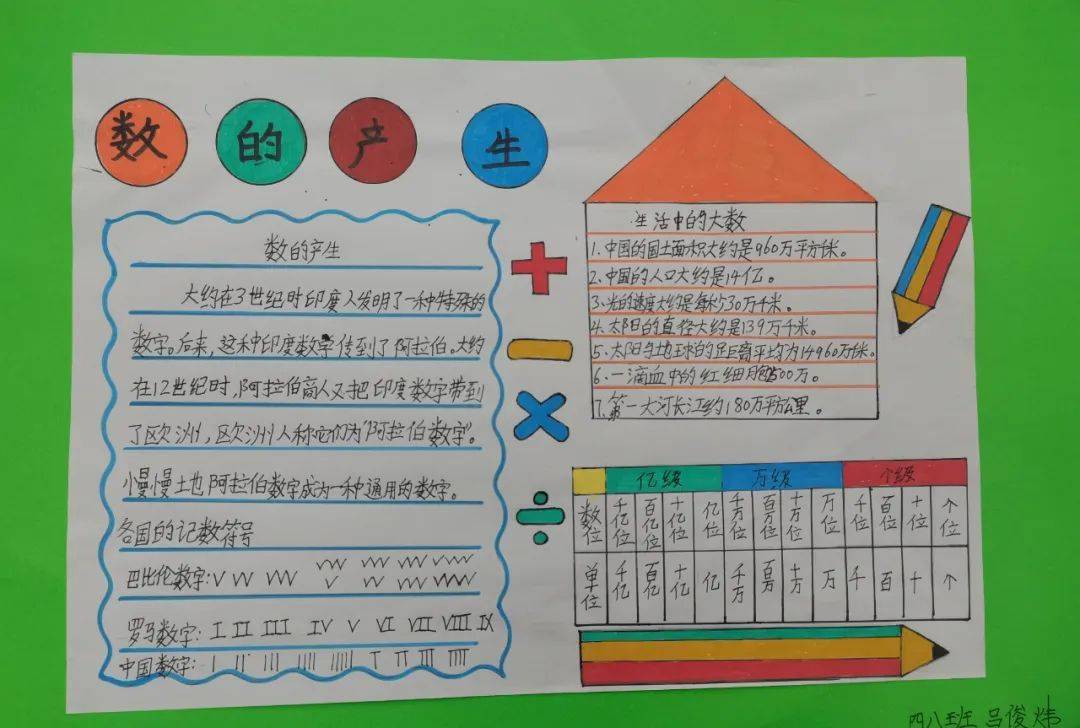 数的产生
数的产生
大约在3世纪时印度人发明了一种特殊的
数字。后来，这种印度数字传到了阿拉伯。大约
在12世纪时，阿拉伯商人又把印度数字带到
了欧洲，欧洲人称它们为“阿拉伯数字”。
慢慢土也阿拉伯数字成为一种通用的数字。
各国的记数符号
巴比伦数字:
罗马数字: I II III IV V VI VII VIII IX
中国数字: | || ||| |||| ||||| T TT TTT TTTT
生活中的大数
1.中国的国土面积大约是960万平方千米。
2.中国的人口大约是14亿。
3.光的速度大约是每秒30万千米。
4.太阳的直径大约是139万千米。
5.太阳与地球的距离平均为14960万千米。
6.一滴血中的红细胞500万。
7.第一大河长江约180万平方公里。
亿级 万级 个级
数位 千亿位 百亿位 十亿位 亿位 千万位 百万位 十万位 万位 千位 百位 十位 个位
单位 千亿 百亿 十亿 亿 千万 百万 十万 万 千 百 十 个
四八班 吕俊炜